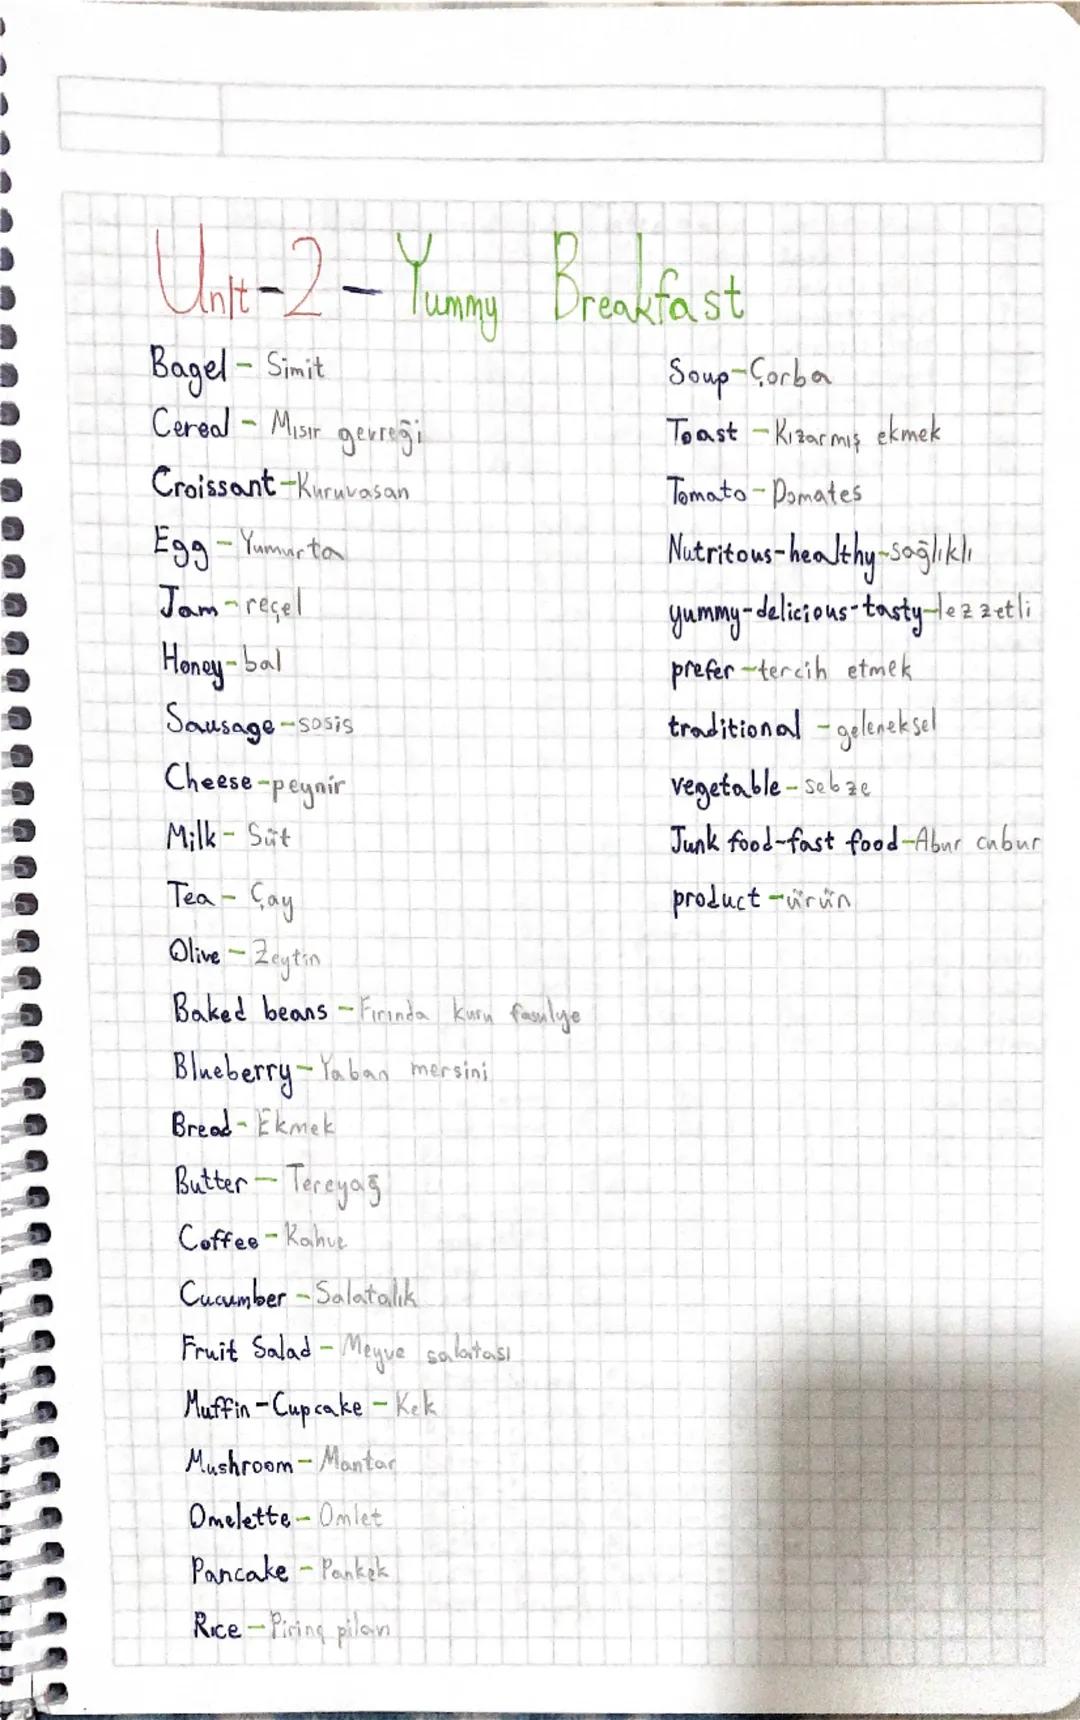 Unit-2-Yummy Breakfast
Bagel - Simit
Cereal - Mısır gevreği
Croissant-Kuruvasan
Egg - Yumurta
Jam-reçel
Honey-bal
Sausage-sosis
Cheese-peynir
Milk- Süt
Tea - Çay
Olive - Zeytin
Baked beans - Fırında kuru fasulye
Blueberry-Yaban mersini
Bread- Ekmek
Butter - Tereyağ
Coffee- Kahve
Cucumber - Salatalık
Fruit Salad - Meyve salatası
Muffin-Cupcake - Kek
Mushroom- Mantar
Omelette- Omlet
Pancake - Pankek
Rice-Pirinç pilavı
Soup-Çorba
Toast -Kızarmış ekmek
Tomato- Domates
Nutritous-healthy-sağlıklı
yummy-delicious-tasty-lezzetli
prefer-tercih etmek
traditional - geleneksel
vegetable- sebze
Junk food-fast food-Abur cubur
product-ürün